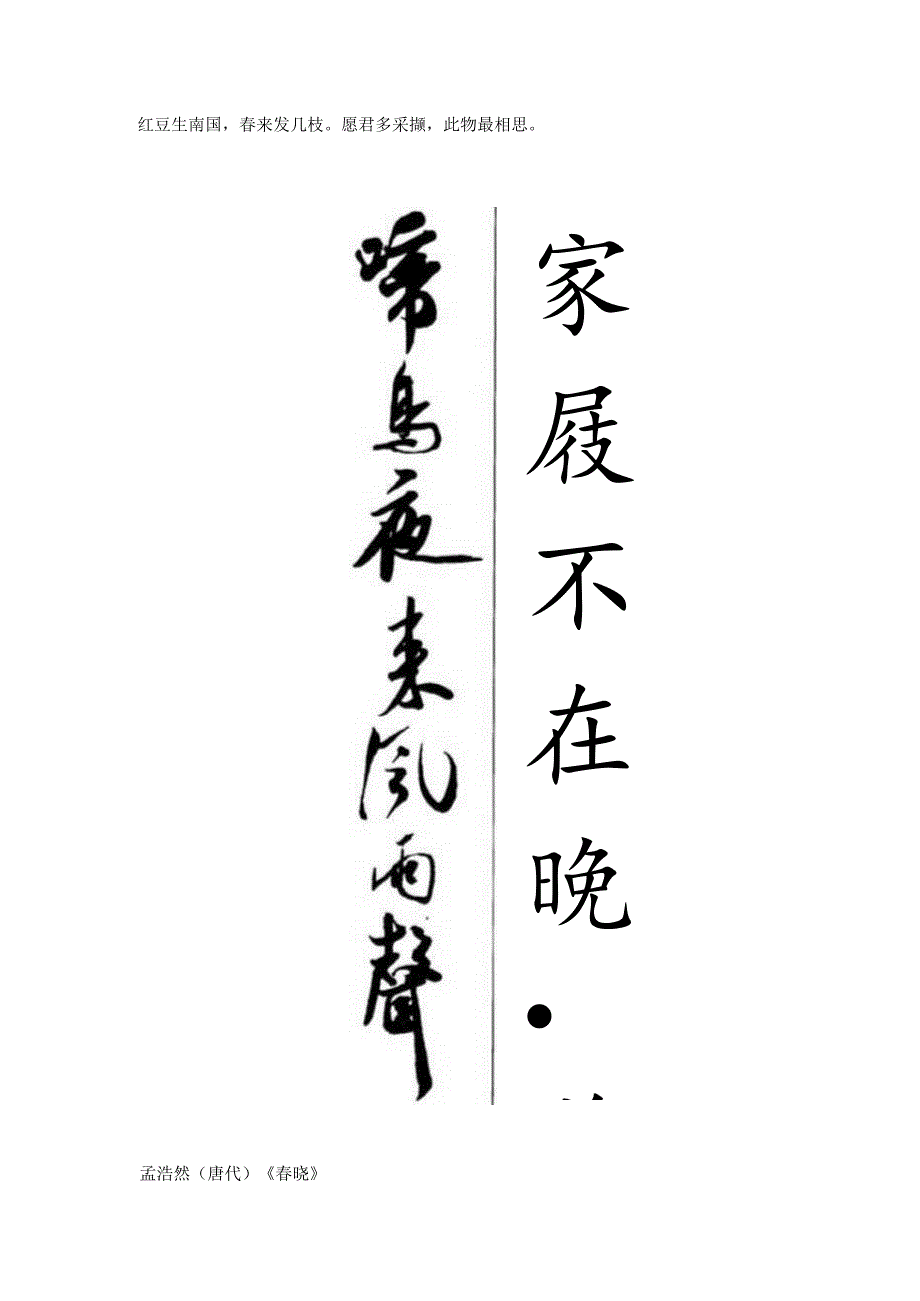 红豆生南国，春来发几枝。愿君多采撷，此物最相思。
家屐不在晚
•
啼鳥夜来風雨聲
孟浩然（唐代）《春晓》